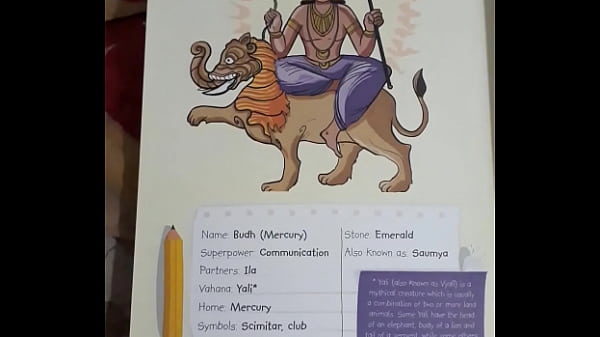 Name: Budh (Mercury)
Superpower: Communication
Partners: Ila
Vahana: Yali*
Home: Mercury
Symbols: Scimitar, club
Stone: Emerald
Also Known as: Saumya
* Yali (also Known as Vyali) is a
mythical creature which is usually
a combination of two or more land
animals. Some Yali have the head
of an elephant, body of a lion and
tail of a serpent, while some others